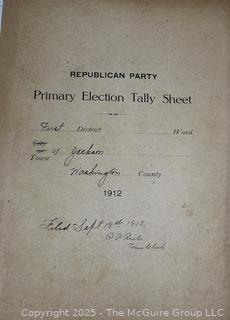 REPUBLICAN PARTY
Primary Election Tally Sheet
First District Ward
City
or of Jackson
Town
Washington County
1912
Filed Sept 1912,
Town Clerk
Copyright 2025 - The McGuire Group LLC